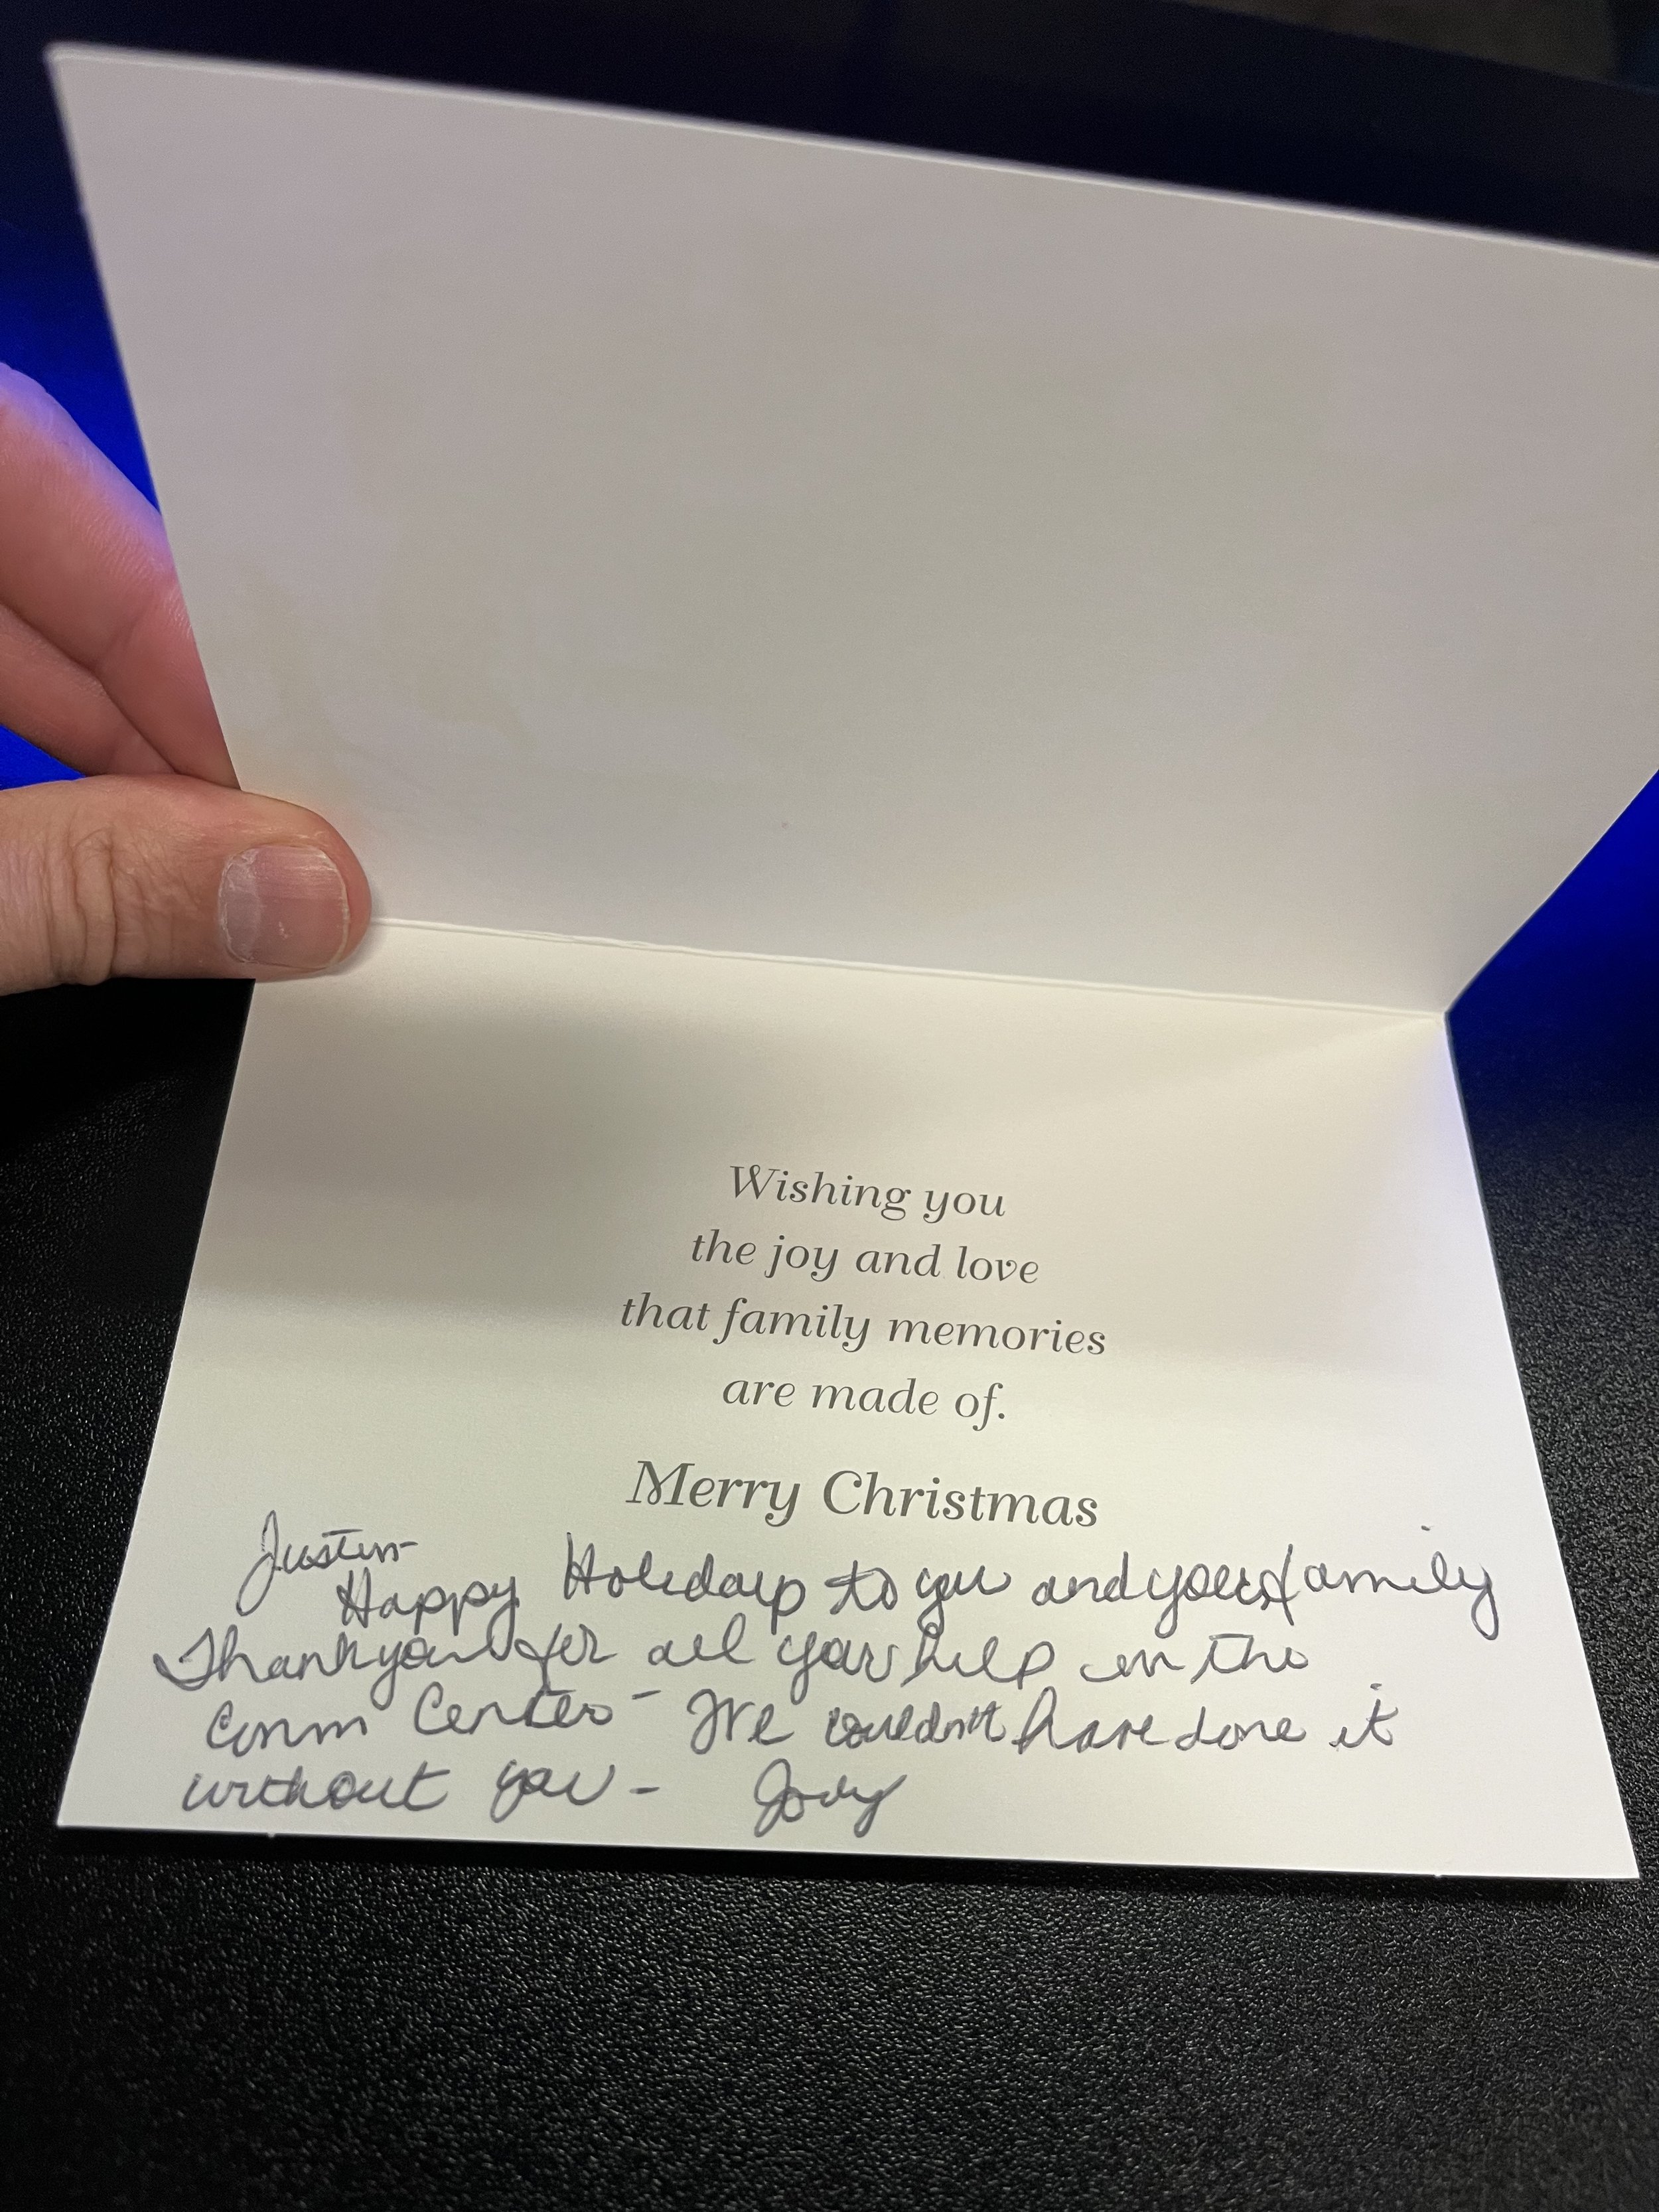 Wishing you
the joy and love
that family memories
are made of.
Merry Christmas
Justin-
Happy Holidays to you and your family
Thank you for all your help in the
Comm Center - We couldn't have done it
without you - Jody